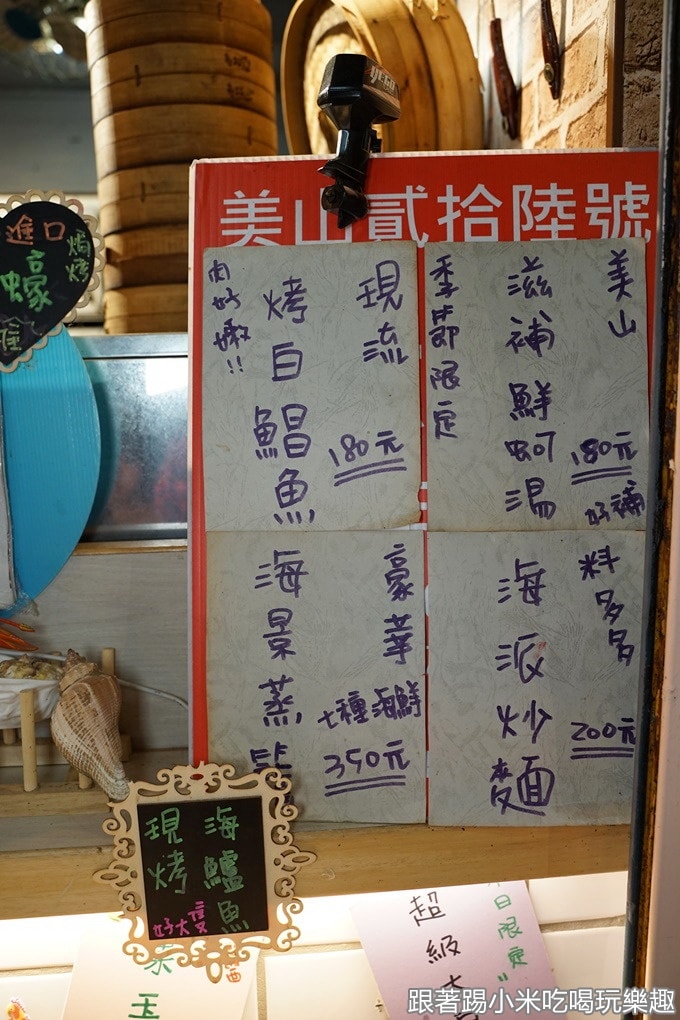 美山貳拾陸號
美山
滋補鮮蚵湯
180元
好補
季節限定
現流
烤白鯧魚
180元
肉好嫩!!
料多多
海派炒麵
200元
豪華
七種海鮮
350元
海景蒸
進口
焗烤
蠔
海鱸魚
現烤
好大隻
日限定
超級
玉
跟著踢小米吃喝玩樂趣